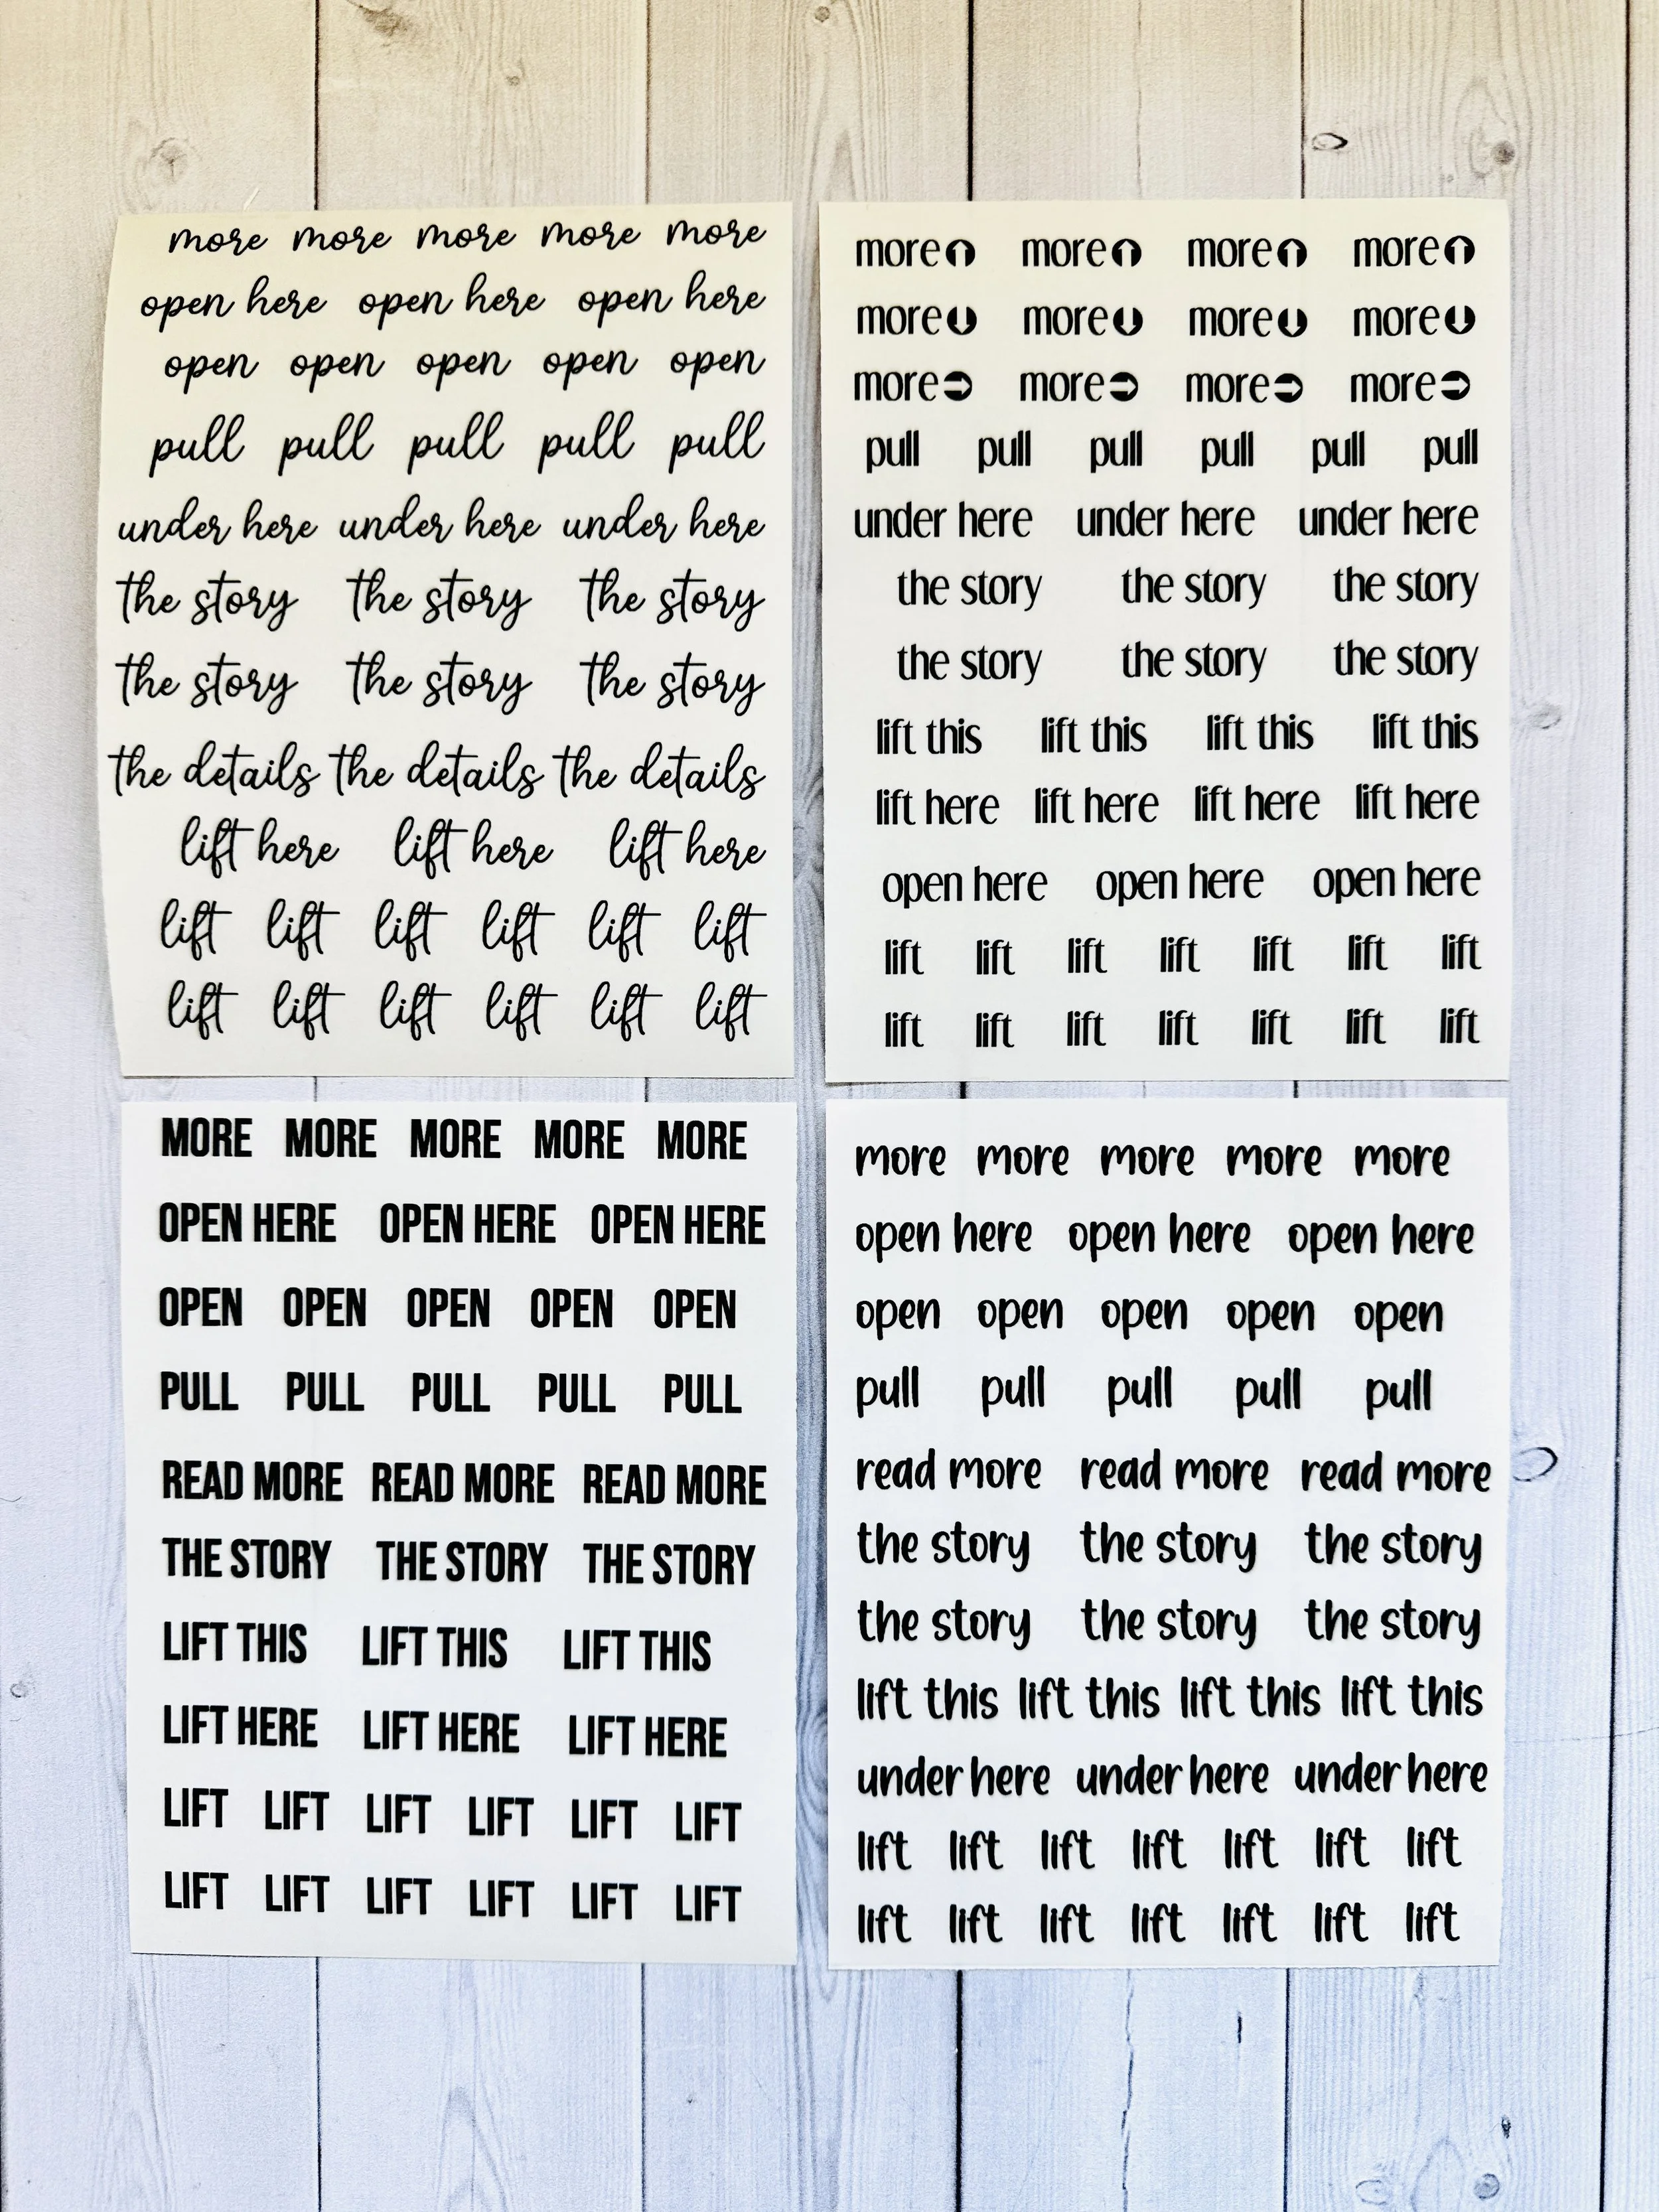 more more more more more
open here open here open here
open open open open open
pull pull pull pull pull
under here under here under here
the story the story the story
the story the story the story
the details the details the details
lift here lift here lift here
lift lift lift lift lift lift
lift lift lift lift lift lift
more more more more
more more more more
more more more more
pull pull pull pull pull pull
under here under here under here
the story the story the story
the story the story the story
lift this lift this lift this lift this
lift here lift here lift here lift here
open here open here open here
lift lift lift lift lift lift lift
lift lift lift lift lift lift lift
MORE MORE MORE MORE MORE
OPEN HERE OPEN HERE OPEN HERE
OPEN OPEN OPEN OPEN OPEN
PULL PULL PULL PULL PULL
READ MORE READ MORE READ MORE
THE STORY THE STORY THE STORY
LIFT THIS LIFT THIS LIFT THIS
LIFT HERE LIFT HERE LIFT HERE
LIFT LIFT LIFT LIFT LIFT LIFT
LIFT LIFT LIFT LIFT LIFT LIFT
more more more more more
open here open here open here
open open open open open
pull pull pull pull pull
read more read more read more
the story the story the story
the story the story the story
lift this lift this lift this lift this
under here under here under here
lift lift lift lift lift lift lift
lift lift lift lift lift lift lift